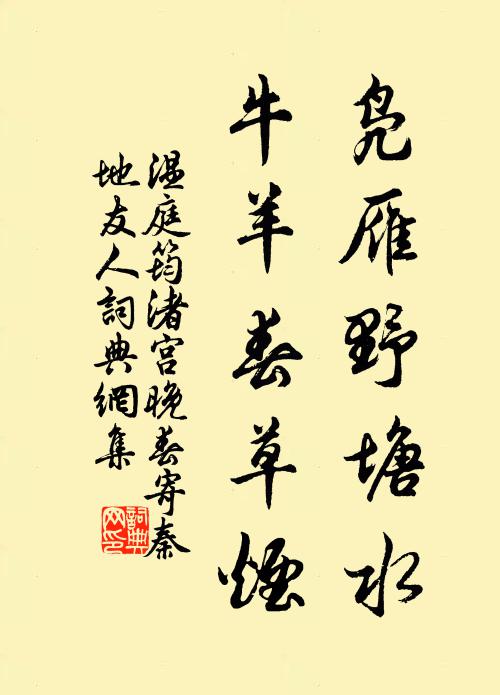 凫雁野塘水
牛羊春草煙
温庭筠渚宮晚春寄秦
地友人詞典網集
詞典网印